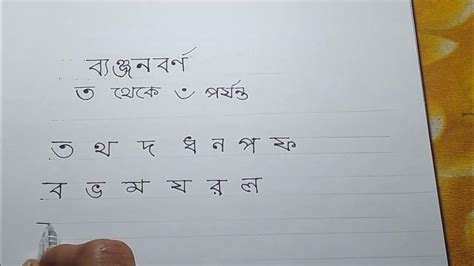 ব্যঞ্জনবর্ণ
ত থেকে ঁ পর্যন্ত
ত থ দ ধ ন প ফ
ব ভ ম য র ল